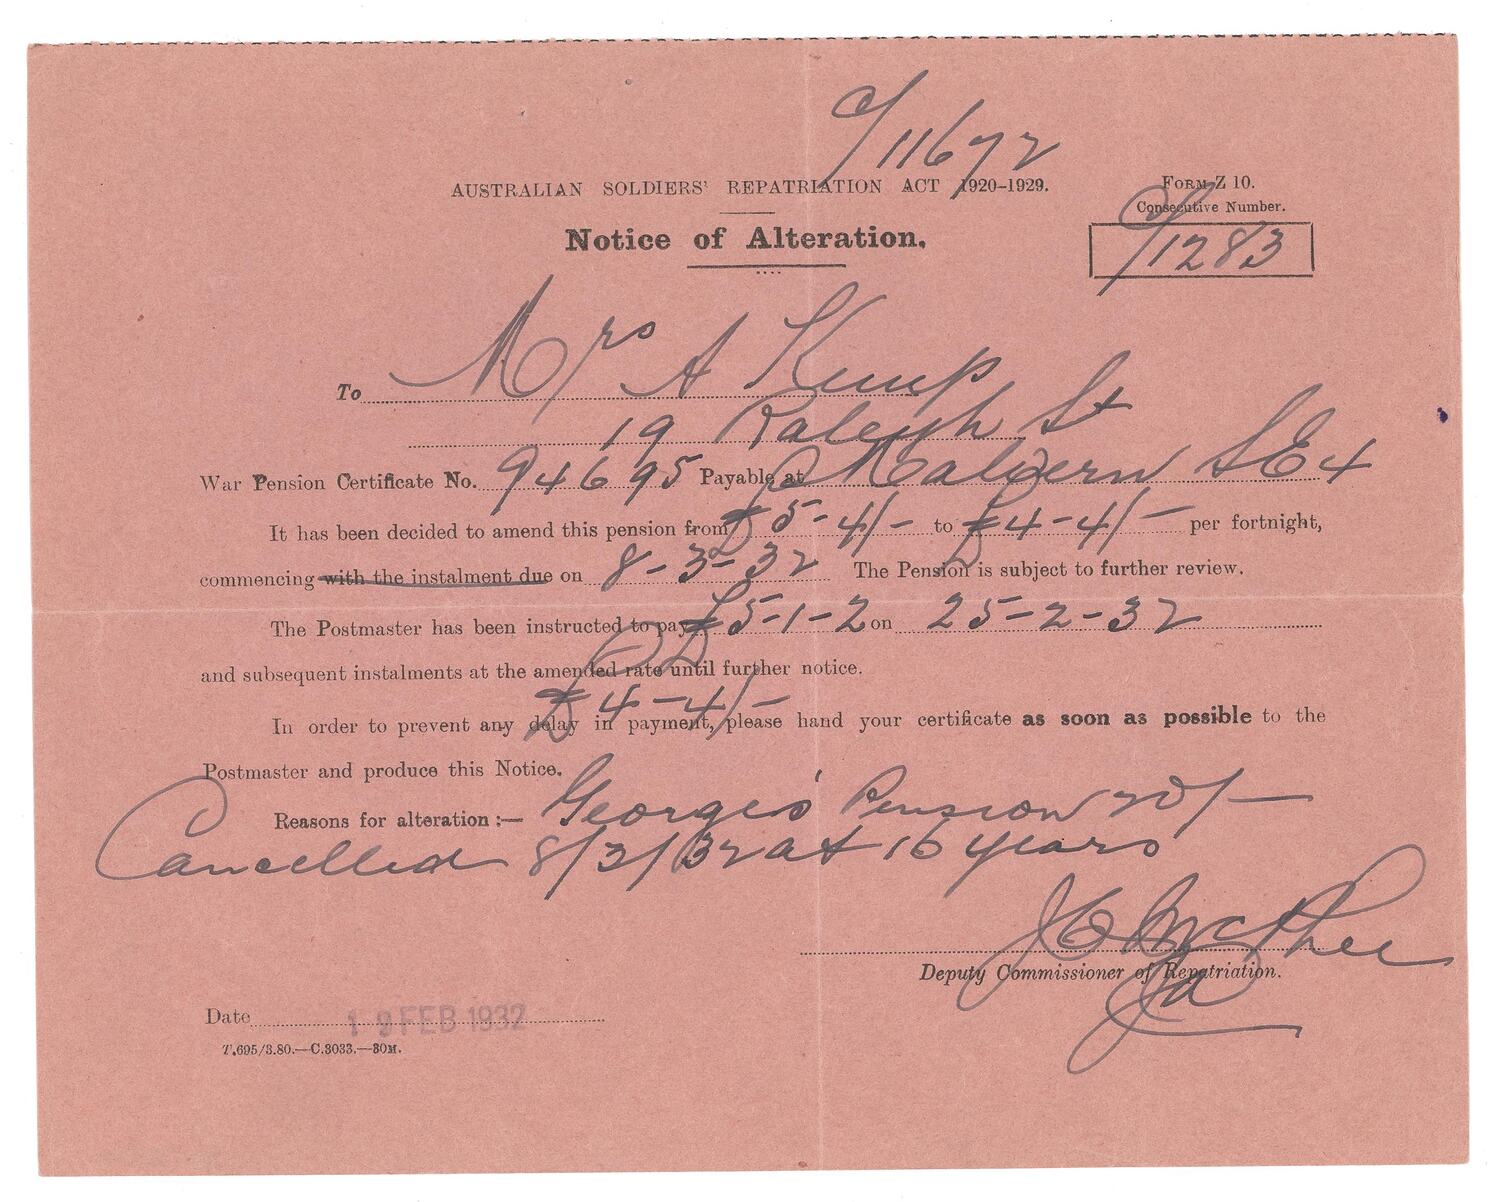 C/11672
AUSTRALIAN SOLDIERS' REPATRIATION ACT 1920-1929.
FORM Z 10.
Consecutive Number.
Notice of Alteration.
C/1283
To Mrs A Kemp
19 Raleigh St
War Pension Certificate No. 94695 Payable at Malvern SE4
It has been decided to amend this pension from £5-4/- to £4-4/- per fortnight,
commencing with the instalment due on 8-3-32 The Pension is subject to further review.
The Postmaster has been instructed to pay £5-1-2 on 25-2-32
and subsequent instalments at the amended rate until further notice.
£4-4/-
In order to prevent any delay in payment, please hand your certificate as soon as possible to the
Postmaster and produce this Notice.
Reasons for alteration :— George's Pension 20/-
Cancelled 8/3/32 at 16 years
McPhee
Deputy Commissioner of Repatriation.
Date 19 FEB 1932
T.695/3.80.—C.3033.—30M.